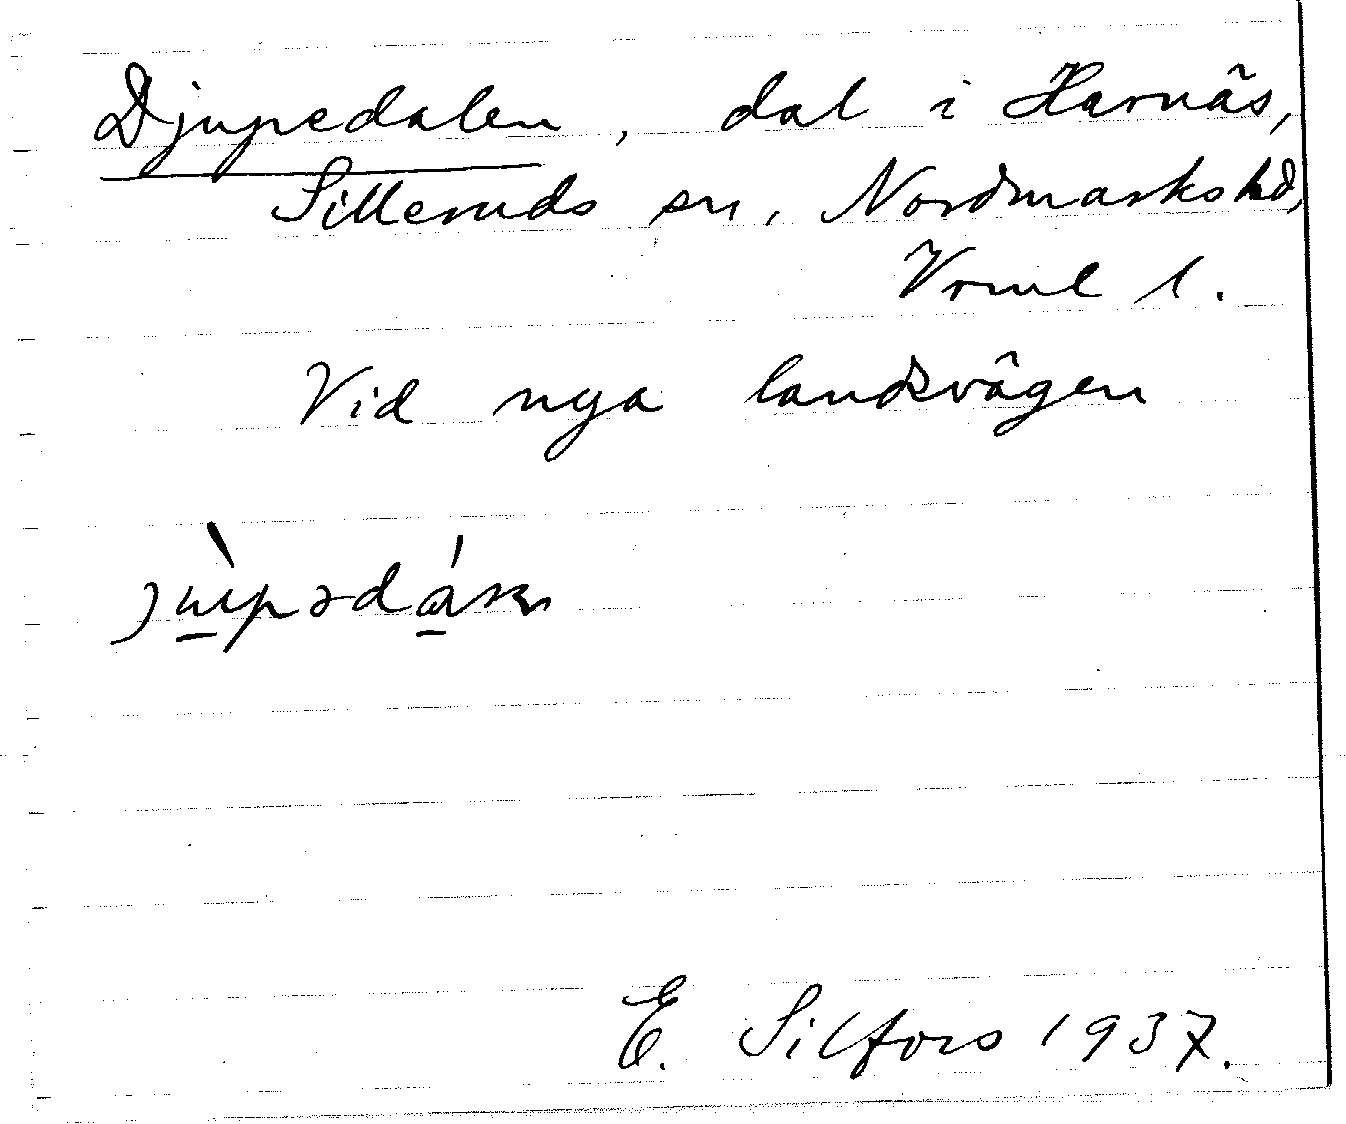 Djupedalen, dal i Harnäs,
Silleruds sn, Nordmarks hd,
Vrml l.
Vid nya landsvägen
E. Silfors 1937.